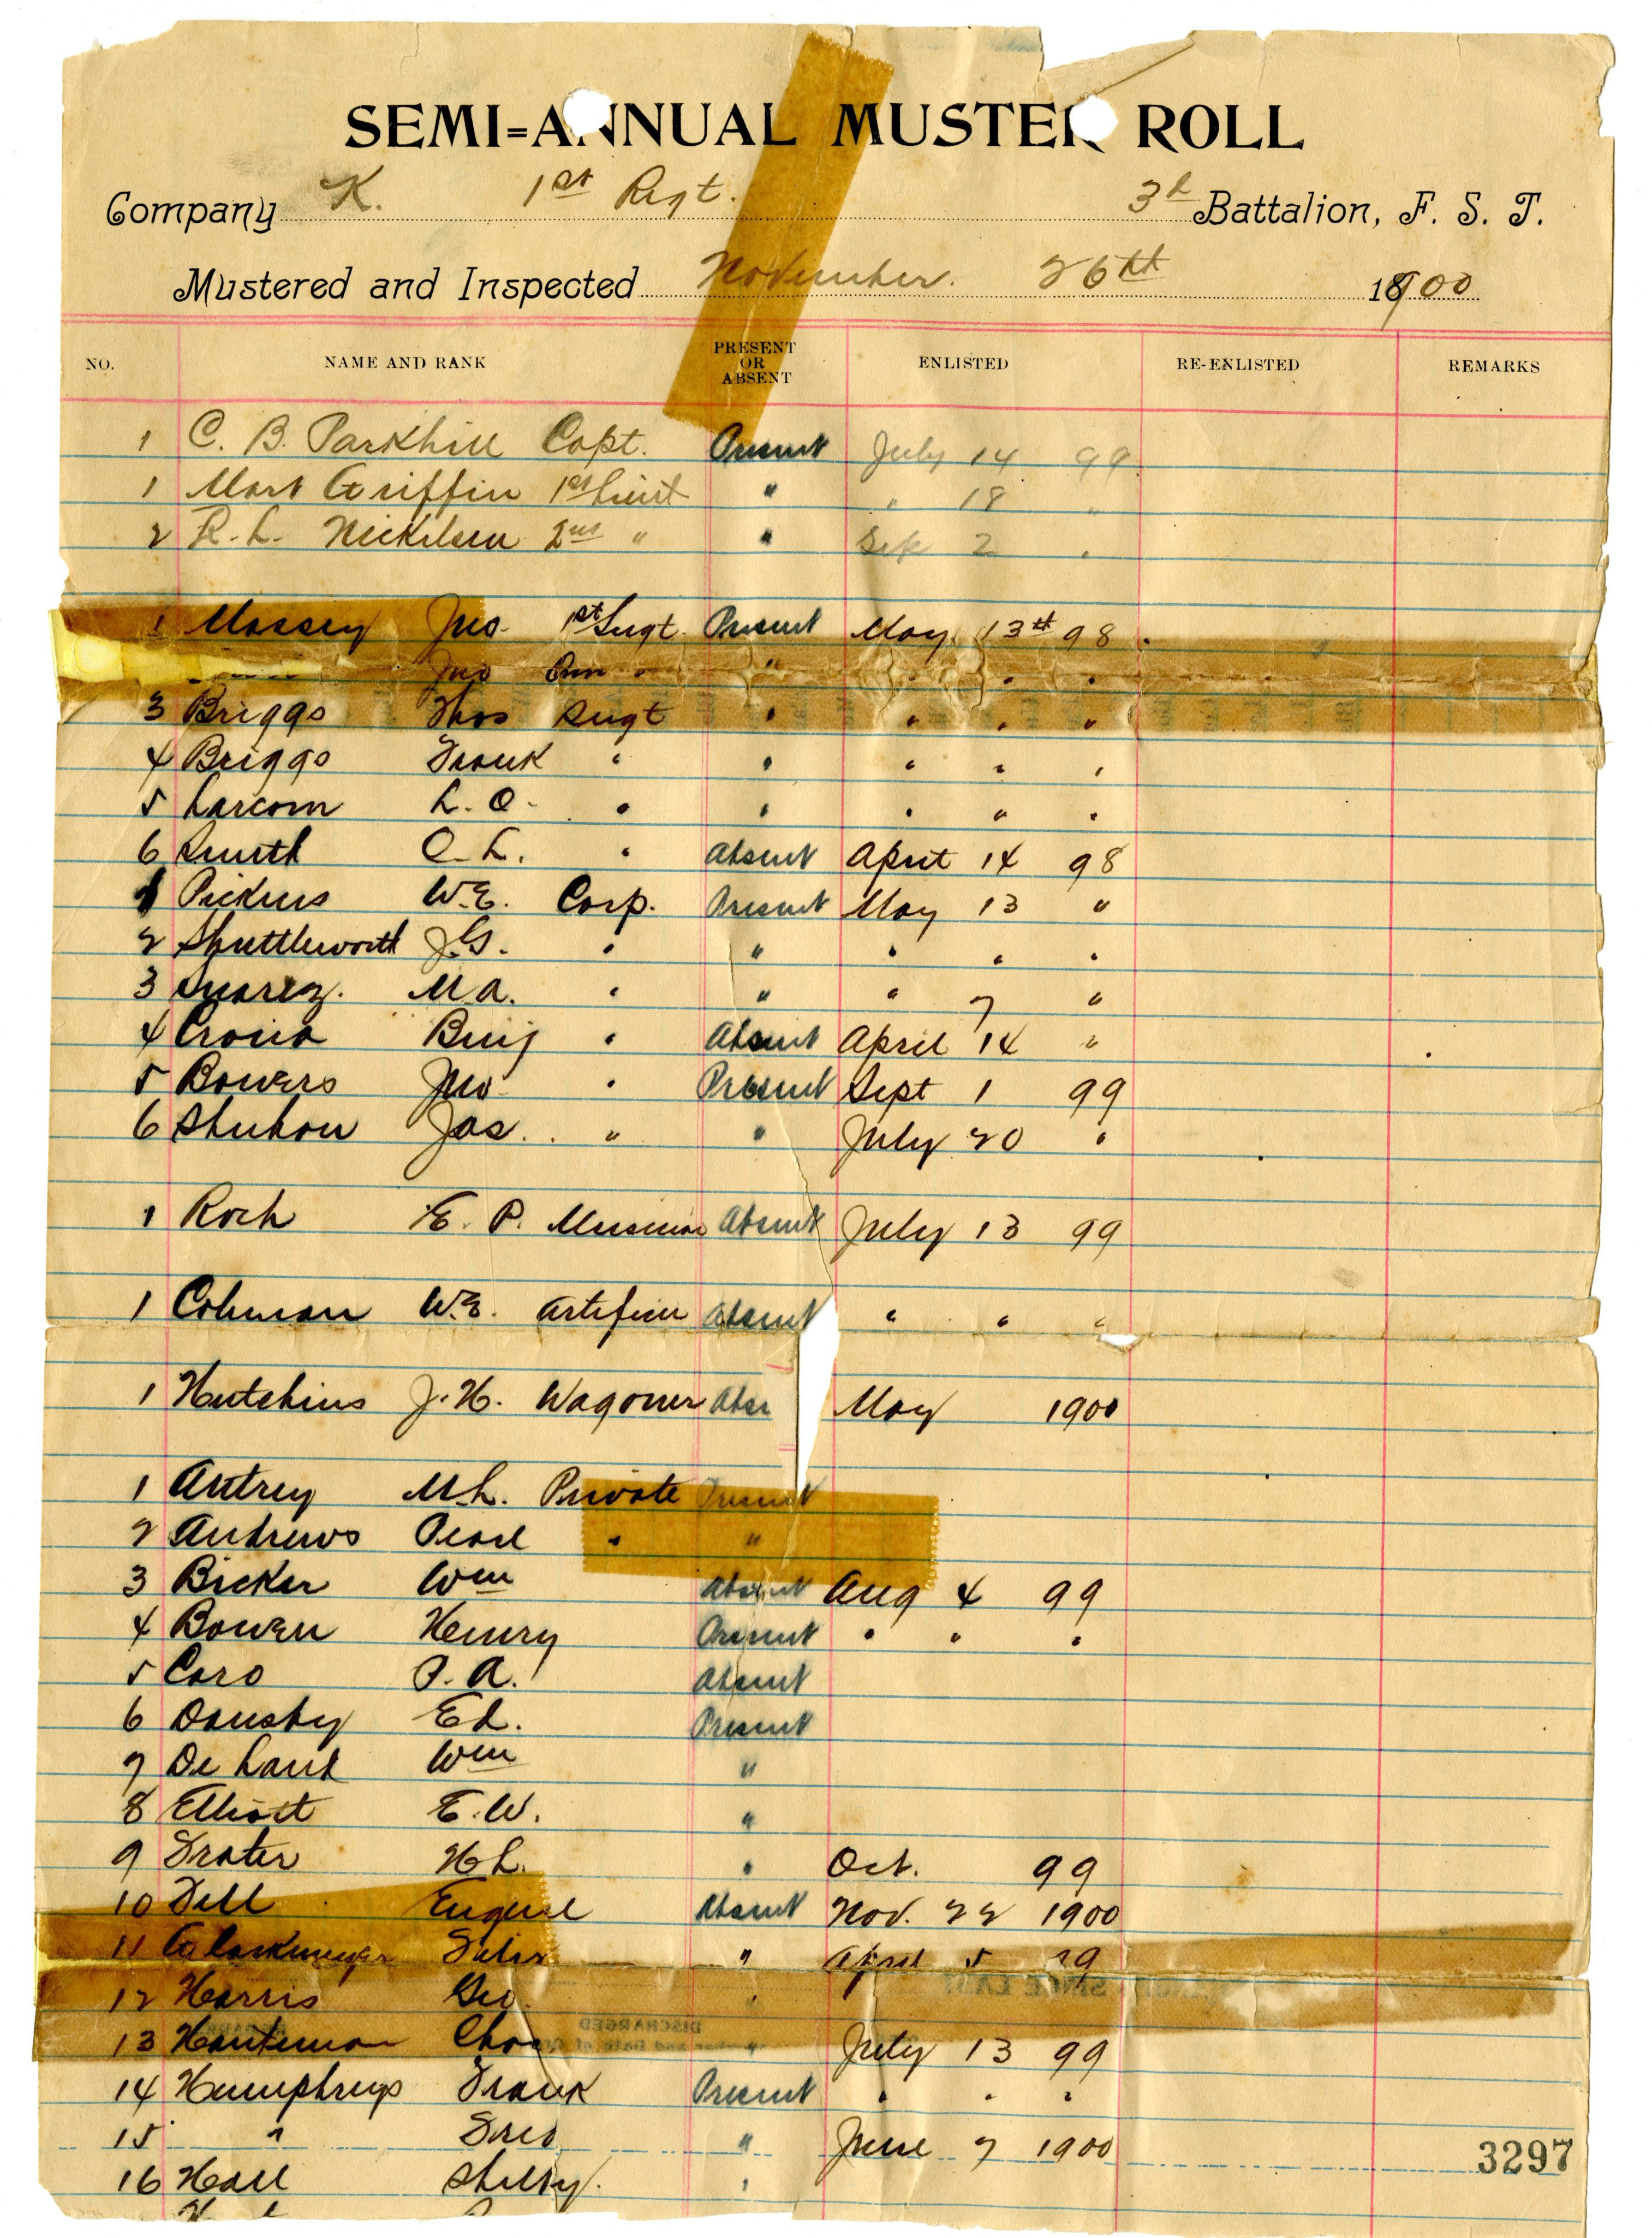 SEMI=ANNUAL MUSTER ROLL
Company K. 1st Regt. 3d Battalion, F. S. T.
Mustered and Inspected November. 26th 1900
NO. NAME AND RANK PRESENT OR ABSENT ENLISTED RE-ENLISTED REMARKS
1 C. B. Parkhill Capt. Present July 14 99
1 Mart Griffin 1st Lieut " " 18 "
2 R. L. Nickelsen 2nd " " Sep 2 "
1 Massey Jno. 1st Sergt. Present May 13th 98
Jno " " " "
3 Briggs Thos Sergt " " " "
4 Briggs Frank " " " " "
5 Larcom L. O. " " " " "
6 Smith O. L. " Absent April 14 98
1 Pickens W.E. Corp. Present May 13 "
2 Shuttleworth J.G. " " " " "
3 Suarez. M.A. " " " 7 "
4 Crona Benj " Absent April 14 "
5 Bowers Jno " Present Sept 1 99
6 Shuhou Jas. " " July 20 "
1 Roch E. P. Musician Absent July 13 99
1 Coleman W.E. Artificer Absent " " "
1 Hutchins J. H. Wagoner Abse May 1900
1 Autrey M.L. Private Present
2 Andrews Pearl " "
3 Bicker Wm Absent Aug 4 99
4 Bowen Henry Present " " "
5 Caro P. A. Absent
6 Dansby Ed. Present
7 De Land Wm "
8 Elliott E. W. "
9 Frater H L. " Oct. 99
10 Fell Eugene Absent Nov. 22 1900
11 Glackmeyer Felix " April 5 99
12 Harris Geo. "
13 Hanteman Chas " July 13 99
14 Humphreys Frank Present " " "
15 " Fred " June 7 1900
16 Hall Shelby. "
3297